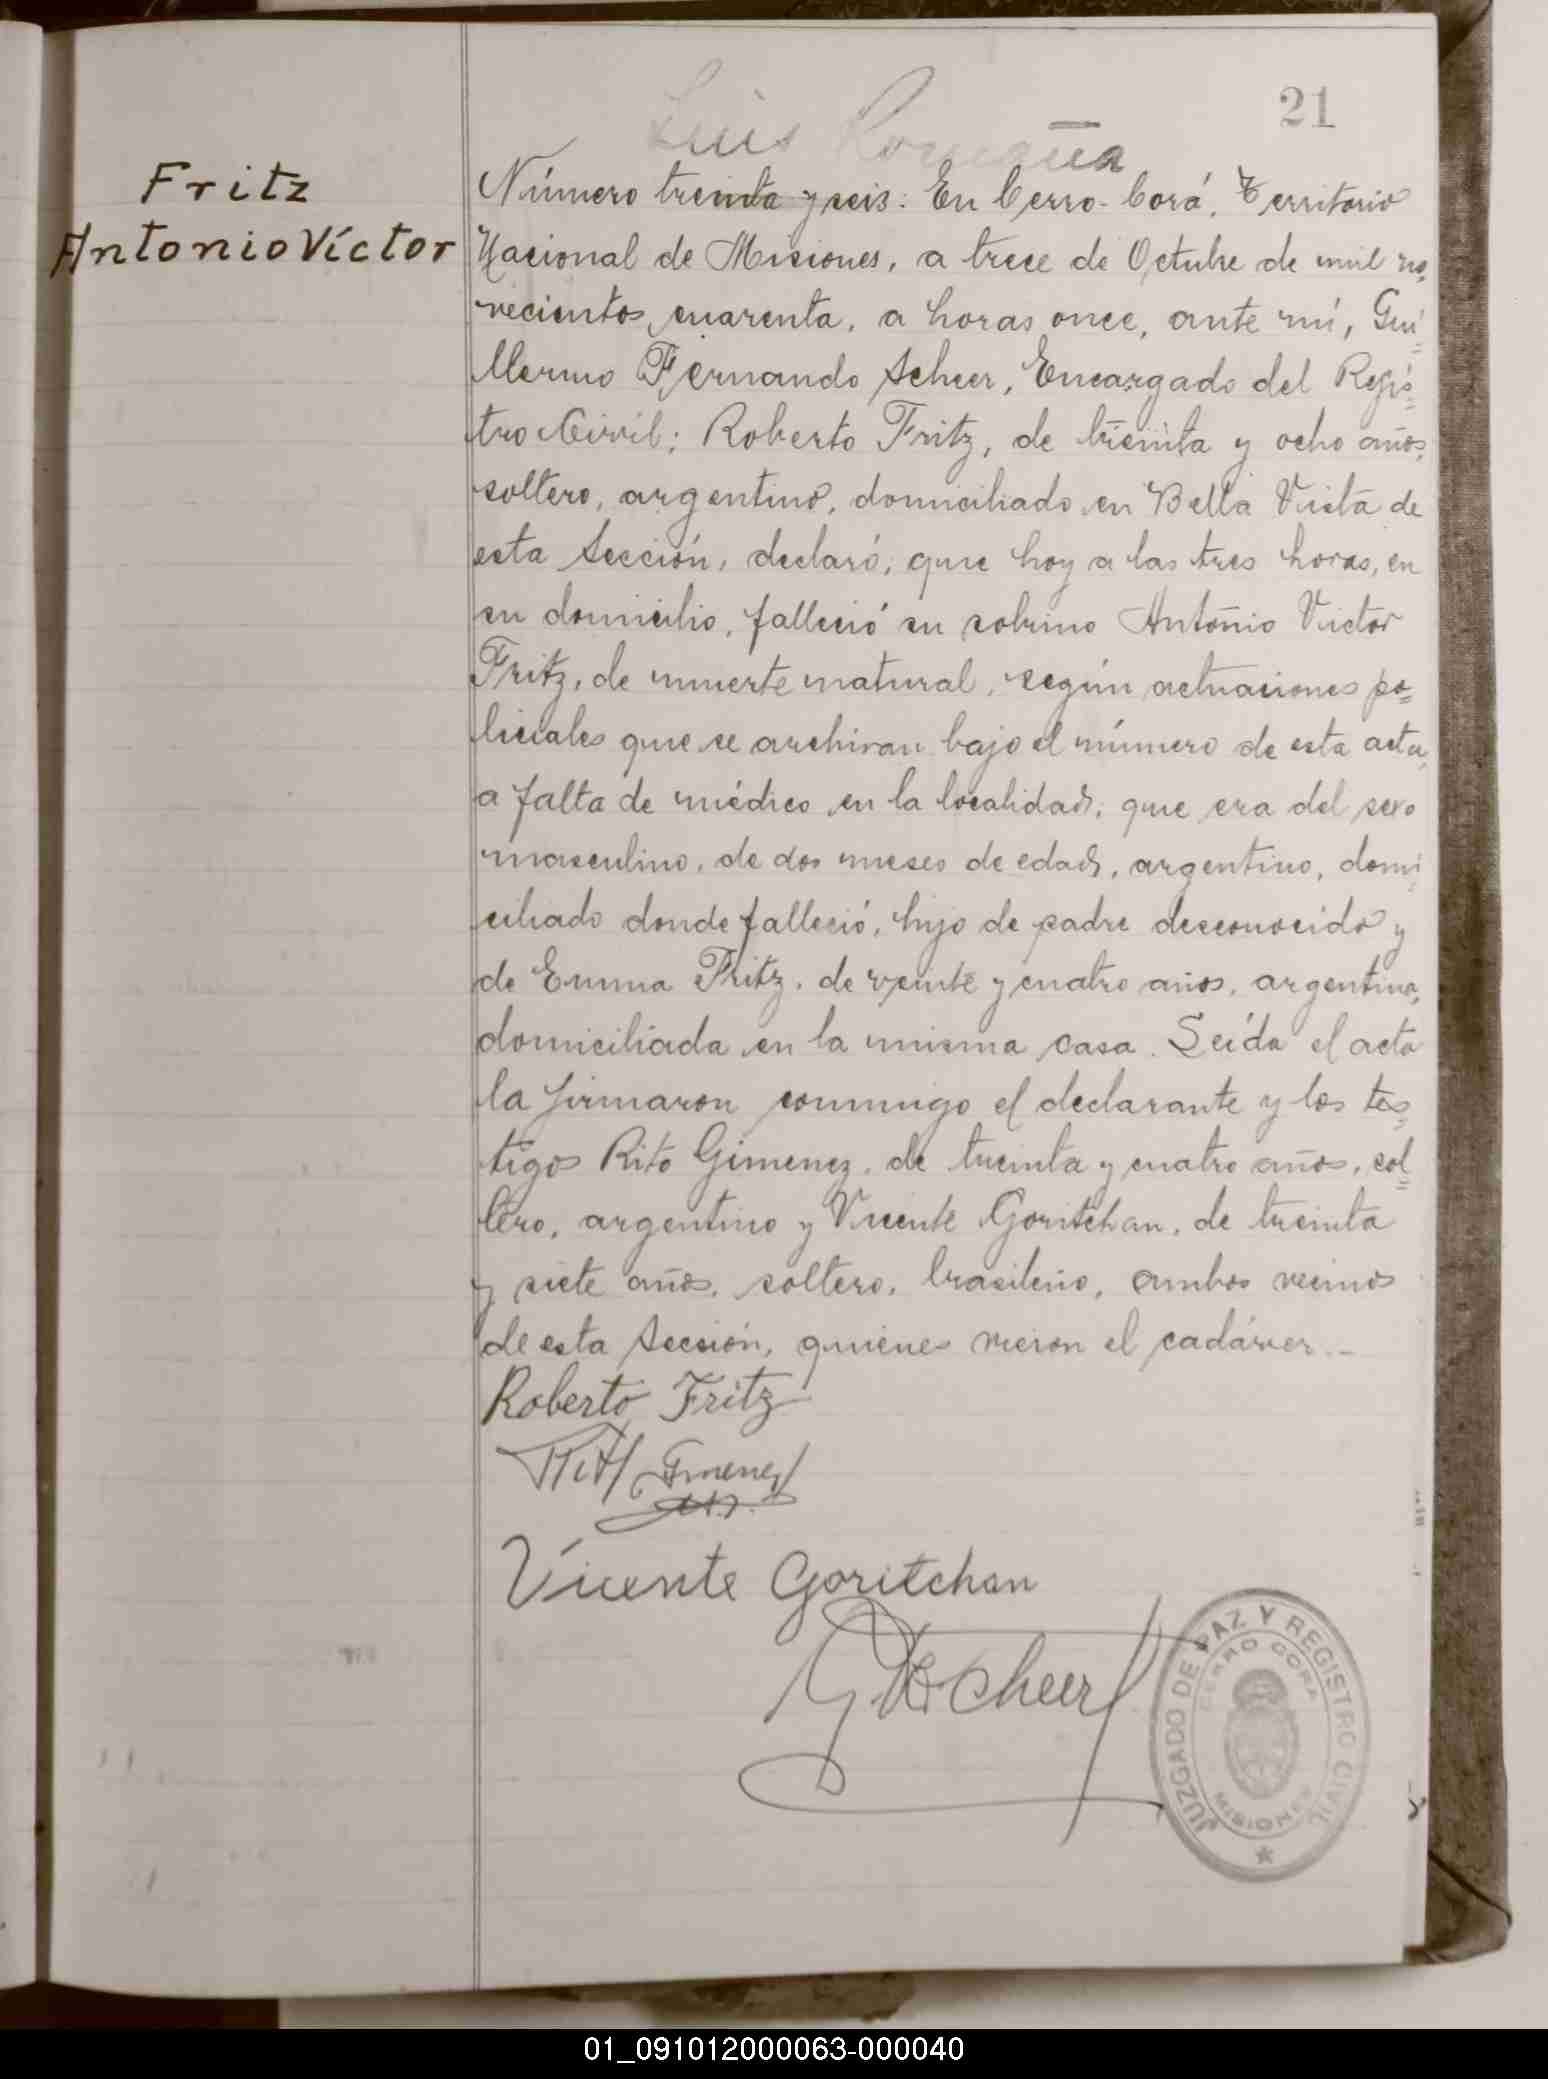 21
Luis
Fritz
Antonio Víctor
Número treinta y seis: En Cerro-Corá, Territorio
Nacional de Misiones, a trece de Octubre de mil no-
vecientos cuarenta, a horas once, ante mí, Gui=
llermo Fernando Scheer, Encargado del Regis=
tro Civil; Roberto Fritz, de treinta y ocho años,
soltero, argentino, domiciliado en Bella Vista de
esta Sección, declaró; que hoy a las tres horas, en
su domicilio, falleció su sobrino Antonio Victor
Fritz, de muerte natural, según actuaciones po=
liciales que se archivan bajo el número de esta acta,
a falta de médico en la localidad; que era del sexo
masculino, de dos meses de edad, argentino, domi=
ciliado donde falleció, hijo de padre desconocido y
de Emma Fritz, de veinte y cuatro años, argentina,
domiciliada en la misma casa. Leída el acta
la firmaron conmigo el declarante y los tes=
tigos Rito Gimenez, de treinta y cuatro años, sol=
tero, argentino y Vicente Goritchan, de treinta
y siete años, soltero, brasileño, ambos vecinos
de esta Sección, quienes vieron el cadáver.-
Roberto Fritz
Rito Gimenez
Vicente Goritchan
Scheer
JUZGADO DE PAZ Y REGISTRO CIVIL
CERRO CORA
MISIONES
01_091012000063-000040